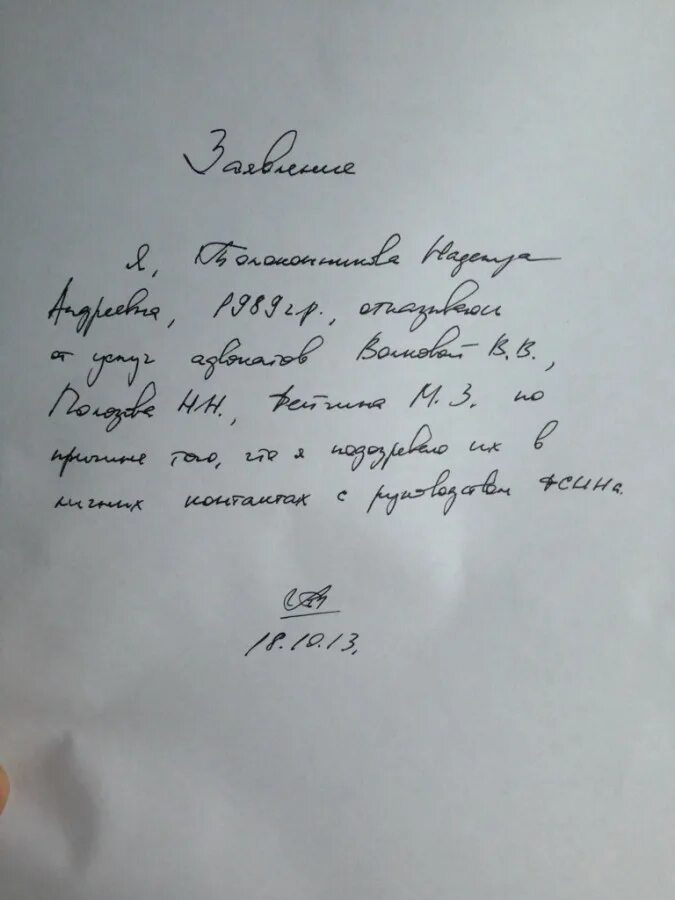 Заявление
Я, Толоконникова Надежда
Андреевна, 1989 г.р., отказываюсь
от услуг адвокатов Волковой В.В.,
Полозова Н.Н., Фейгина М.З. по
причине того, что я подозреваю их в
личных контактах с руководством ФСИНа.
18.10.13.